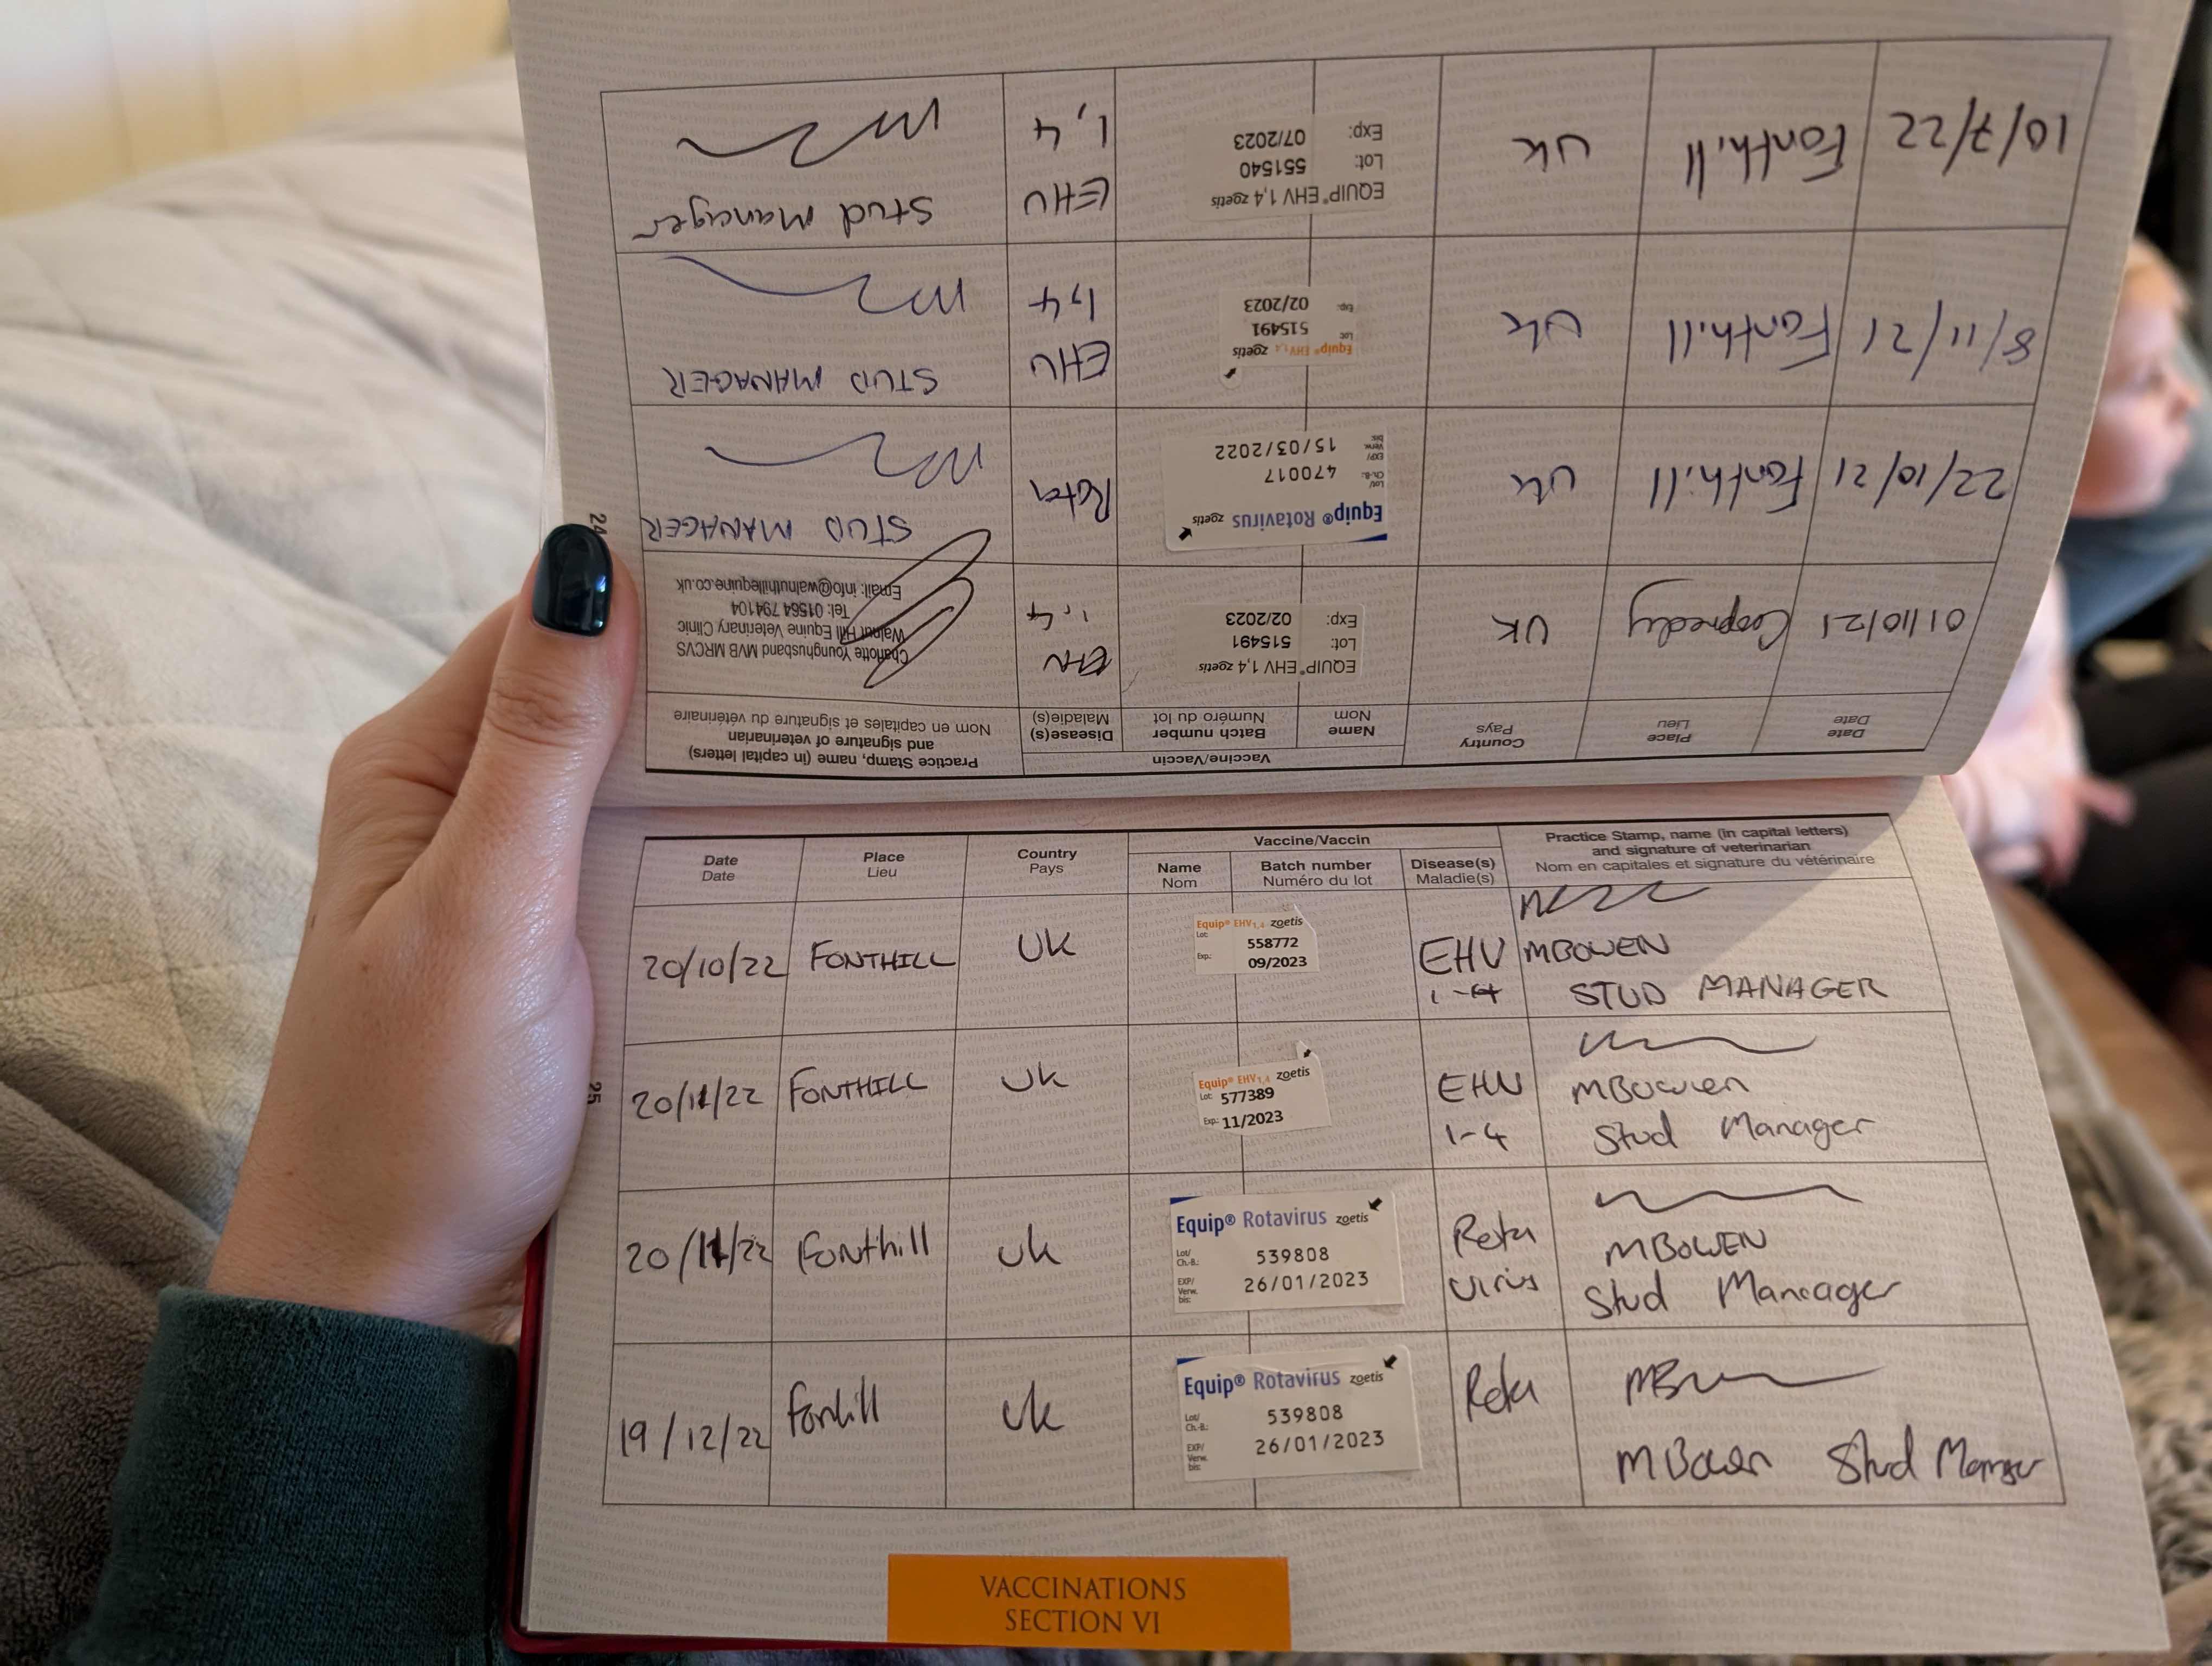 24
Date
Date
Place
Lieu
Country
Pays
Vaccine/Vaccin
Name
Nom
Batch number
Numéro du lot
Disease(s)
Maladie(s)
Practice Stamp, name (in capital letters)
and signature of veterinarian
Nom en capitales et signature du vétérinaire
01/10/21
Cropredy
UK
EQUIP® EHV 1,4 zoetis
Lot: 515491
Exp: 02/2023
EHV
1,4
Charlotte Younghusband MVB MRCVS
Walnut Hill Equine Veterinary Clinic
Tel: 01564 794104
Email: info@walnuthillequine.co.uk
22/10/21
Fonthill
UK
Equip® Rotavirus zoetis
Lot/
Ch.-B.: 470017
EXP/
Verw.
bis: 15/03/2022
Rota
STUD MANAGER
8/11/21
Fonthill
UK
Equip® EHV1,4 zoetis
Lot: 515491
Exp.: 02/2023
EHV
1,4
STUD MANAGER
10/7/22
Fonthill
UK
EQUIP® EHV 1,4 zoetis
Lot: 551540
Exp: 07/2023
EHV
1,4
Stud Manager
25
Date
Date
Place
Lieu
Country
Pays
Vaccine/Vaccin
Name
Nom
Batch number
Numéro du lot
Disease(s)
Maladie(s)
Practice Stamp, name (in capital letters)
and signature of veterinarian
Nom en capitales et signature du vétérinaire
20/10/22
FONTHILL
UK
Equip® EHV1,4 zoetis
Lot: 558772
Exp.: 09/2023
EHV
1-4
MBOWEN
STUD MANAGER
20/11/22
FONTHILL
UK
Equip® EHV1,4 zoetis
Lot: 577389
Exp.: 11/2023
EHV
1-4
MBowen
Stud Manager
20/11/22
Fonthill
UK
Equip® Rotavirus zoetis
Lot/
Ch.-B.: 539808
EXP/
Verw.
bis: 26/01/2023
Rota
Virus
MBOWEN
Stud Manager
19/12/22
Fonhill
UK
Equip® Rotavirus zoetis
Lot/
Ch.-B.: 539808
EXP/
Verw.
bis: 26/01/2023
Rota
MBowen Stud Manager
VACCINATIONS
SECTION VI